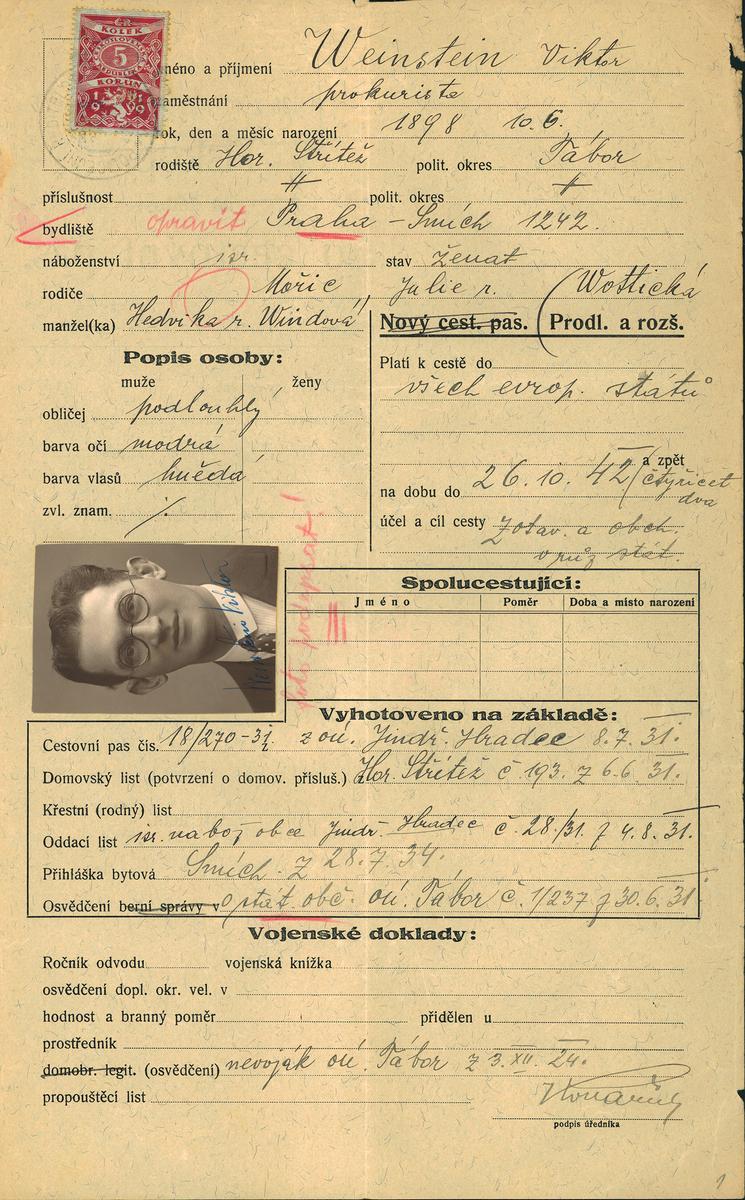 ČR
KOLEK
5
KORUN
1919
Jméno a příjmení Weinstein Viktor
zaměstnání prokurista
rok, den a měsíc narození 1898 10.6.
rodiště Hor. Střítež polit. okres Tábor
příslušnost " polit. okres "
bydliště opravit Praha - Smích 1242.
náboženství isr. stav ženat
rodiče Mořic Julie r. Wottická
manžel(ka) Hedvika r. Windová
Nový cest. pas. (Prodl. a rozš.
Popis osoby:
muže ženy
obličej podlouhlý
barva očí modrá
barva vlasů hnědá
zvl. znam. ./.
Platí k cestě do
všech evrop. států
a zpět
na dobu do 26.10.42 (čtyřicet
dva
účel a cíl cesty zotav. a obch.
v růz. stát.
Weinstein Viktor
foto podepsat!
Spolucestující:
Jméno Poměr Doba a místo narození
Vyhotoveno na základě:
Cestovní pas čís. 18/270-31 z oú. Jindř. Hradec 8.7.31.
Domovský list (potvrzení o domov. přísluš.) Hor. Střítež č 193. z 6.6.31.
Křestní (rodný) list
Oddací list isr. nábož obce Jindř. Hradec č. 28/31. z 4.8.31.
Přihláška bytová Smích. z 28.7.34.
Osvědčení berní správy v o stát. obč. oú. Tábor č. 1/237 z 30.6.31.
Vojenské doklady:
Ročník odvodu vojenská knížka
osvědčení dopl. okr. vel. v
hodnost a branný poměr přidělen u
prostředník
domobr. legit. (osvědčení) nevoják oú. Tábor z 3. XII. 24.
propouštěcí list
podpis úředníka
1